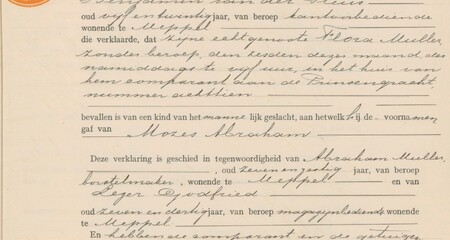 Benjamin van der Sluis
oud vijf en twintig jaar, van beroep kantoorbediende
wonende te Meppel
die verklaarde, dat zijne echtgenoote Flora Muller,
zonder beroep, den zesden dezer maand des
namiddags te vijf uur, in het huis van
hem comparant aan de Prinsengracht
nummer achttien
bevallen is van een kind van het mannelijk geslacht, aan hetwelk hij de voornamen
gaf van Mozes Abraham
Deze verklaring is geschied in tegenwoordigheid van Abraham Muller,
, oud zeven en zestig jaar, van beroep
borstelmaker, wonende te Meppel en van
Lezer Godfried
oud zeven en dertig jaar, van beroep magazijnbediende, wonende
te Meppel
En hebben de comparant en de getuigen